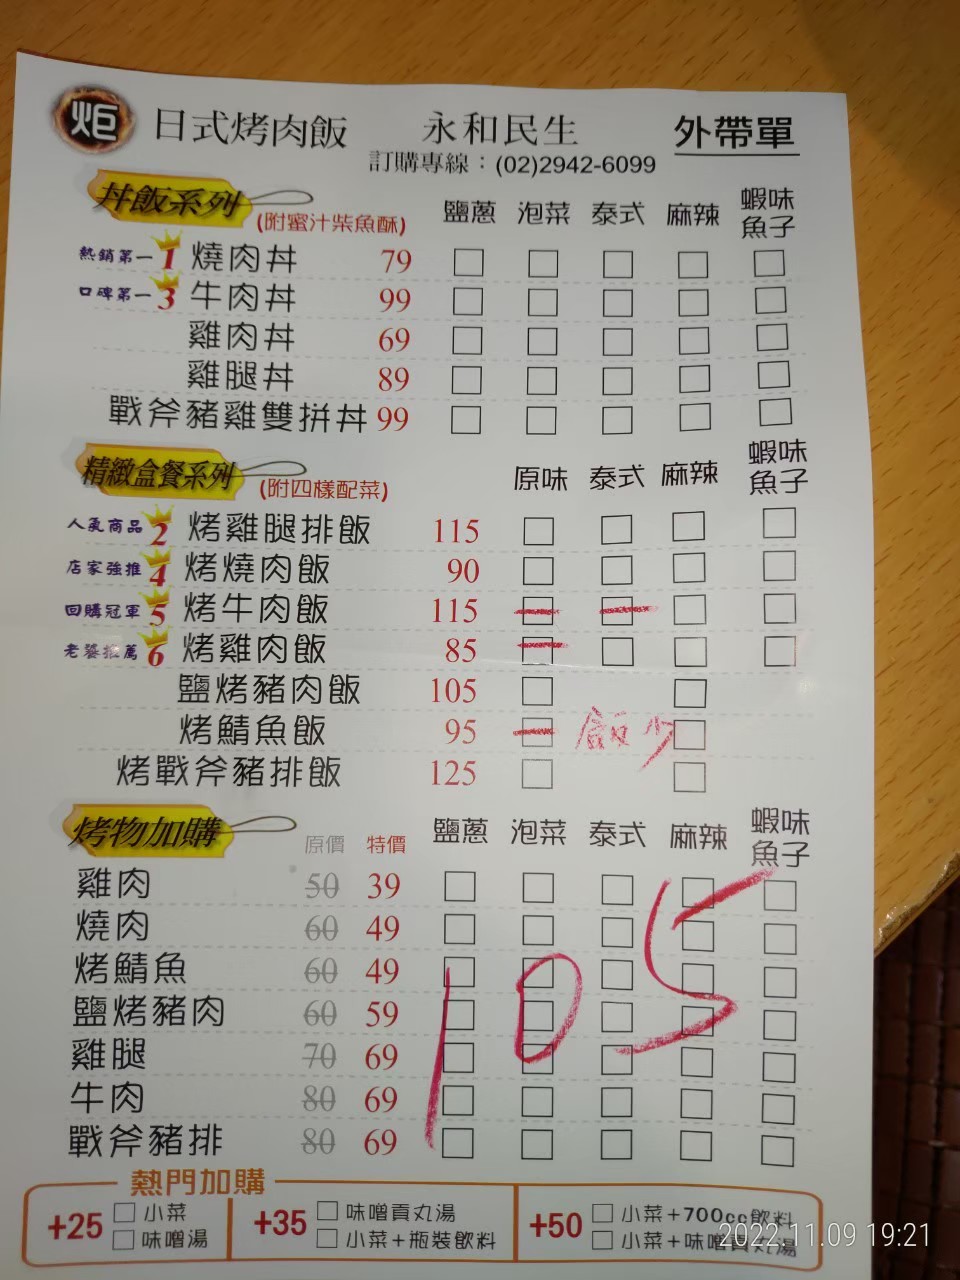 炬 日式烤肉飯 永和民生 外帶單
訂購專線：(02)2942-6099
丼飯系列 (附蜜汁柴魚酥) 鹽蔥 泡菜 泰式 麻辣 蝦味魚子
熱銷第一 1 燒肉丼 79
口碑第一 3 牛肉丼 99
雞肉丼 69
雞腿丼 89
戰斧豬雞雙拼丼 99
精緻盒餐系列 (附四樣配菜) 原味 泰式 麻辣 蝦味魚子
人氣商品 2 烤雞腿排飯 115
店家強推 4 烤燒肉飯 90
回購冠軍 5 烤牛肉飯 115
老饕推薦 6 烤雞肉飯 85
鹽烤豬肉飯 105
烤鯖魚飯 95 飯少
烤戰斧豬排飯 125
烤物加購 原價 特價 鹽蔥 泡菜 泰式 麻辣 蝦味魚子
雞肉 50 39
燒肉 60 49
烤鯖魚 60 49
鹽烤豬肉 60 59
雞腿 70 69
牛肉 80 69
戰斧豬排 80 69
105
熱門加購
+25 小菜
味噌湯
+35 味噌貢丸湯
小菜+瓶裝飲料
+50 小菜+700cc飲料
小菜+味噌貢丸湯
2022.11.09 19:21